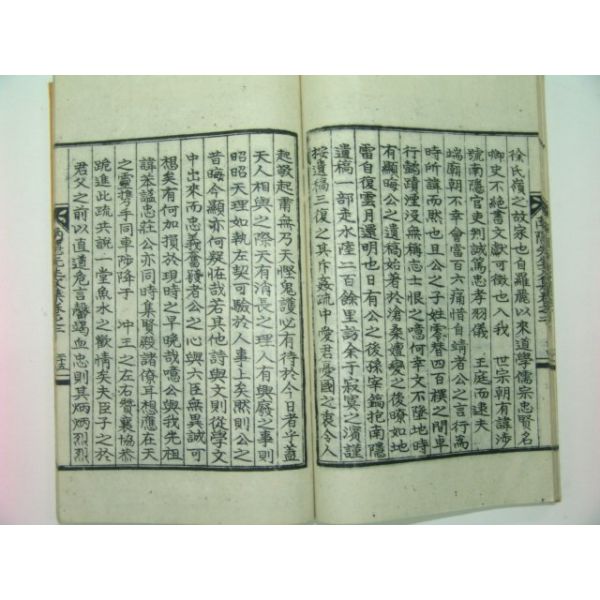 徐氏嶺之故家也自羅麗以來道學儒宗忠賢名
卿史不絶書文獻可徵也入我 世宗朝有諱涉
號南隱官吏判誠篤忠孝羽儀 王庭而逮夫
端廟朝不幸會當百六痛惜自靖者公之言行爲
時所諱而然也且公之子姓零替四百禩之間卓
行懿蹟湮沒無稱志士恨之噫何幸文不墜地時
有顯晦公之遺稿始著於滄桑嬗變之後暸如地
雷自復雲月還明也日有公之後孫宰鎰抱南隱
遺稿一部走水陸二百餘里訪余于寂寞之濱謹
按遺稿三復之其斥姦疏中愛君憂國之衷令人
起敬起肅無乃天慳鬼護必有待於今日者乎蓋
天人相與之際天有消長之理人有興廢之事則
昭昭天理如執左契可驗於人事上矣然則公之
昔晦今顯亦何疑在哉若其他詩與文則從學文
中出來而忠義奮發者公之心與六臣無異誠可
想矣有何加損於現時之早晩哉噫公與我先祖
諱苯諡忠莊公亦同時集賢殿諸僚耳想應在天
之靈携手同車陟降乎 冲王之左右贊襄協恭
跪進此疏共說一堂魚水之歡情矣夫臣子之於
君父之前以直道危言罄竭血忠則其炳炳烈烈